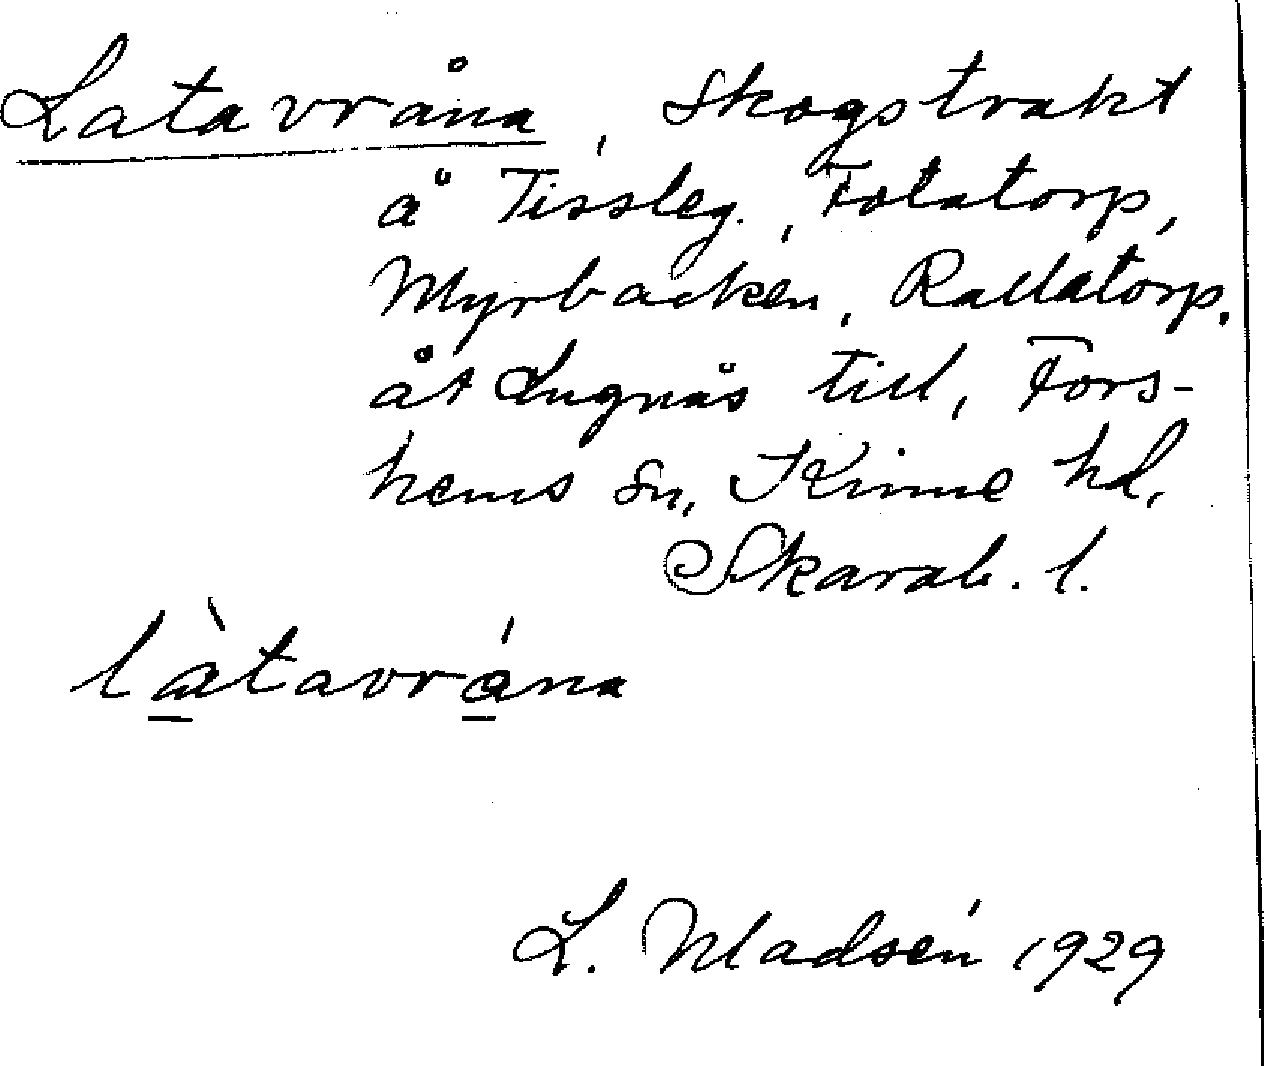 Latavråna, Skogstrakt
å Tissleg., Fotatorp,
Myrbacken, Rallatorp,
åt Lugnås till, Fors-
hems sn, Kinne hd,
Skarab. l.
làtavrána
L. Madsén 1929